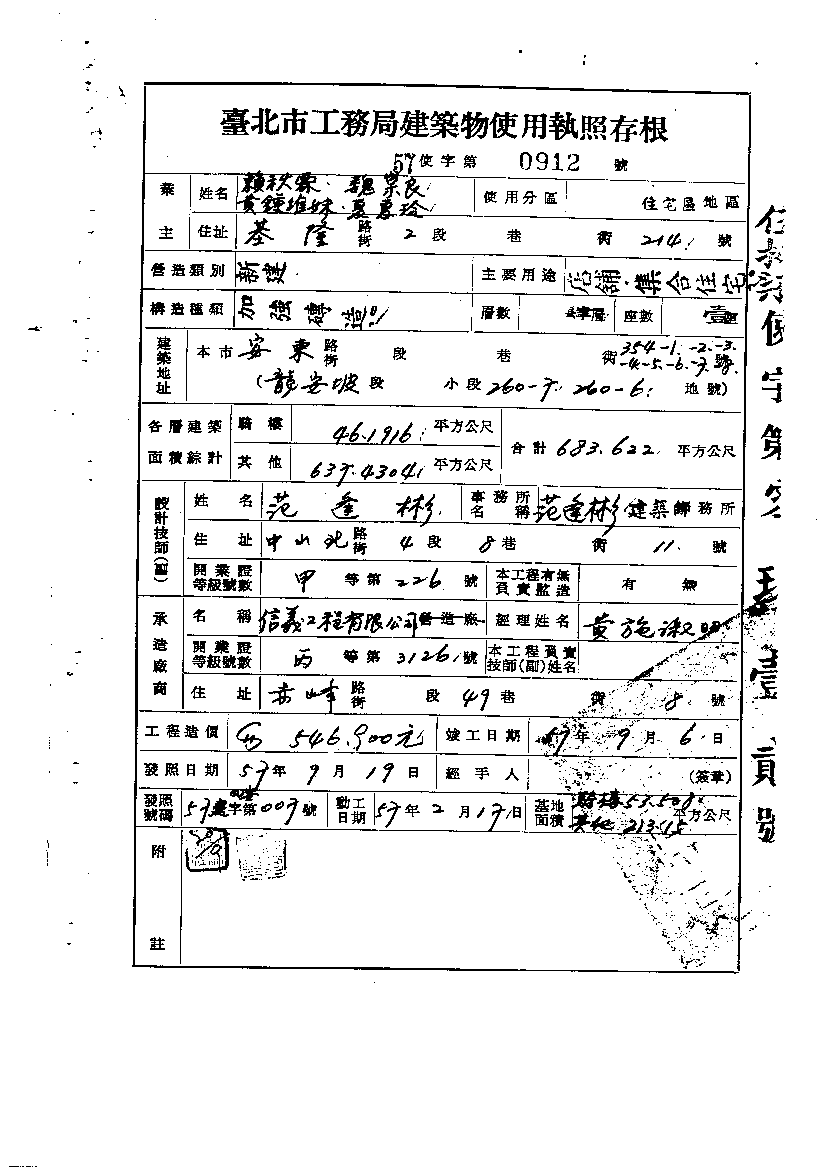 臺北市工務局建築物使用執照存根
57使字第 0912 號
業主 姓名 賴秋霖・魏業良 使用分區 住宅區地區
黃鍾維妹・夏惠玲
住址 基隆路街 2段 巷 街 214 號
營造類別 新建 主要用途 店舖・集合住宅
構造種類 加強磚造 層數 層 座數 壹
建築地址 本市 安東路街 段 巷 街 354-1.-2.-3. 號
-4.-5.-6.-7.-8.
(龍安坡段 小段 260-7. 260-6. 地號)
各層建築面積綜計 騎樓 46.1916 平方公尺 合計 683.622 平方公尺
其他 637.4304 平方公尺
設計技師(副) 姓名 范逢彬 事務所名稱 范逢彬建築師務所
住址 中山北路街 4段 8巷 街 11. 號
開業證等級號數 甲等第226號 本工程有無負責監造 有 無
承造廠商 名稱 信義工程有限公司營造廠 經理姓名 黃施淑明
開業證等級號數 丙等第3126號 本工程負責技師(副)姓名
住址 赤峰路街 段 49巷 街 8. 號
工程造價 546.900元 竣工日期 57年9月6日
發照日期 57年9月19日 經手人 (簽章)
發照號碼 57 字第007號 動工日期 57年2月17日 基地面積 騎樓53.508 平方公尺
其他 213.15
附註